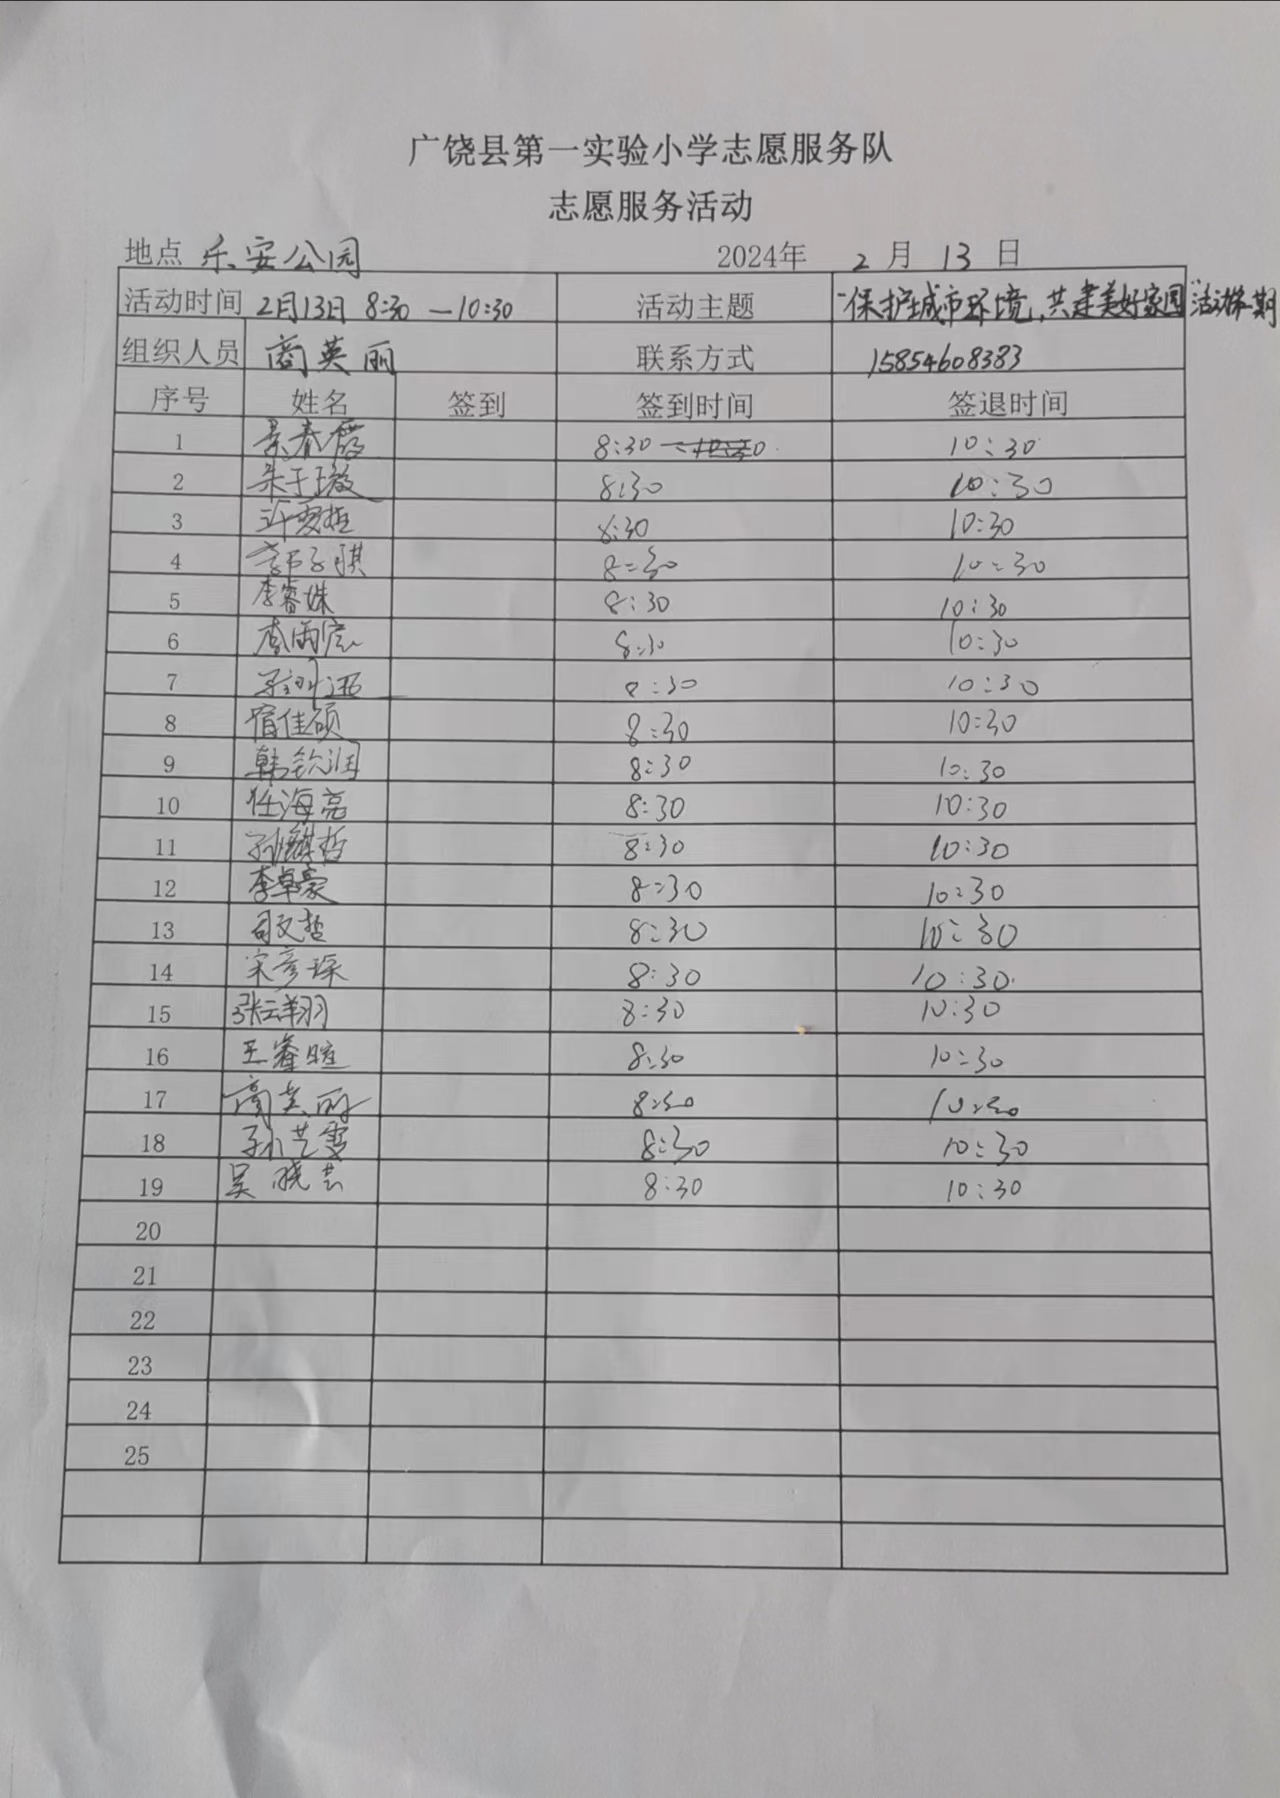 广饶县第一实验小学志愿服务队
志愿服务活动
地点 乐安公园 2024年 2 月 13 日
活动时间 2月13日 8:30 —10:30 活动主题 "保护城市环境,共建美好家园"活动 期
组织人员 商英丽 联系方式 15854608383
序号 姓名 签到 签到时间 签退时间
1 景春霞 8:30 10:30
2 朱于璇 8:30 10:30
3 许雯 8:30 10:30
4 郭子骐 8:30 10:30
5 李睿姝 8:30 10:30
6 李雨宸 8:30 10:30
7 8:30 10:30
8 宿佳硕 8:30 10:30
9 韩钦润 8:30 10:30
10 任海亮 8:30 10:30
11 孙麒哲 8:30 10:30
12 李卓豪 8:30 10:30
13 司文哲 8:30 10:30
14 宋彦琛 8:30 10:30
15 张云翔羽 8:30 10:30
16 王睿暄 8:30 10:30
17 商英丽 8:30 10:30
18 孙艺雯 8:30 10:30
19 吴晓芸 8:30 10:30
20
21
22
23
24
25